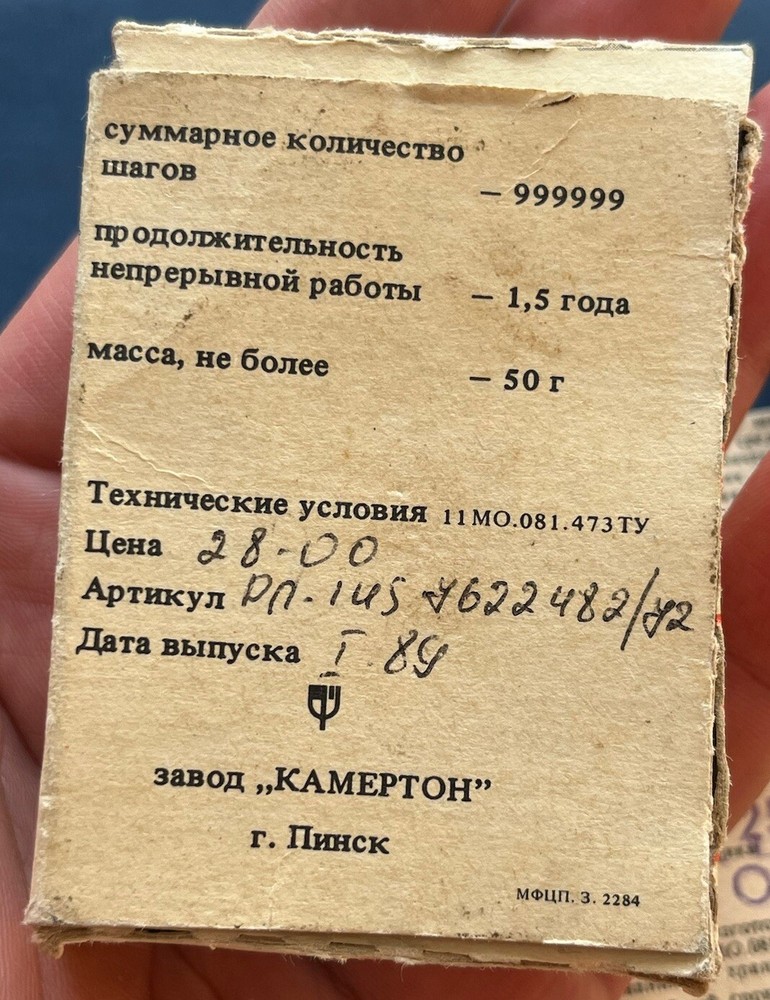 суммарное количество
шагов
– 999999
продолжительность
непрерывной работы – 1,5 года
масса, не более – 50 г
Технические условия 11МО.081.473ТУ
Цена 28-00
Артикул 7622482/72
Дата выпуска I 89
завод „КАМЕРТОН”
г. Пинск
МФЦП. З. 2284